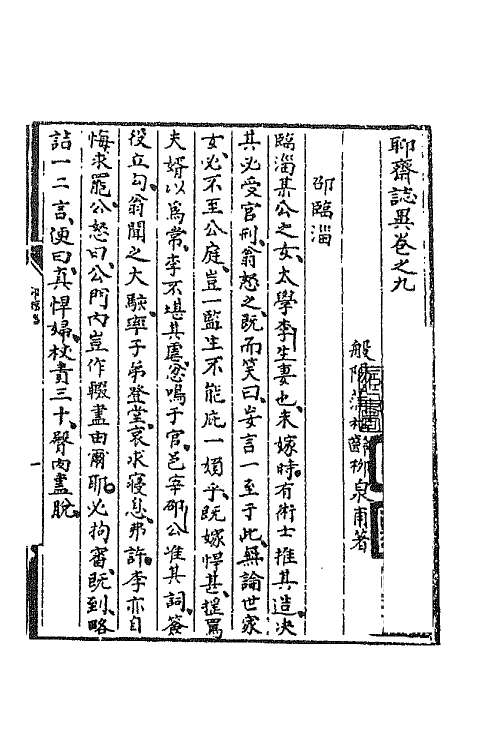 聊齋誌異卷之九
般陽蒲松齡柳泉甫著
邵臨淄
臨淄某公之女太學李生妻也未嫁時有術士推其造决
其必受官刑翁怒之既而笑曰妄言一至于此無論世家
女必不至公庭豈一監生不能庇一婦乎既嫁悍甚捶罵
夫婿以爲常李不堪其虐忿鳴于官邑宰邵公准其詞簽
役立勾翁聞之大駭率子弟登堂哀求寢息弗許李亦自
悔求罷公怒曰公門內豈作輟盡由爾耶必拘審既到略
詰一二言便曰真悍婦杖責三十臀肉盡脫